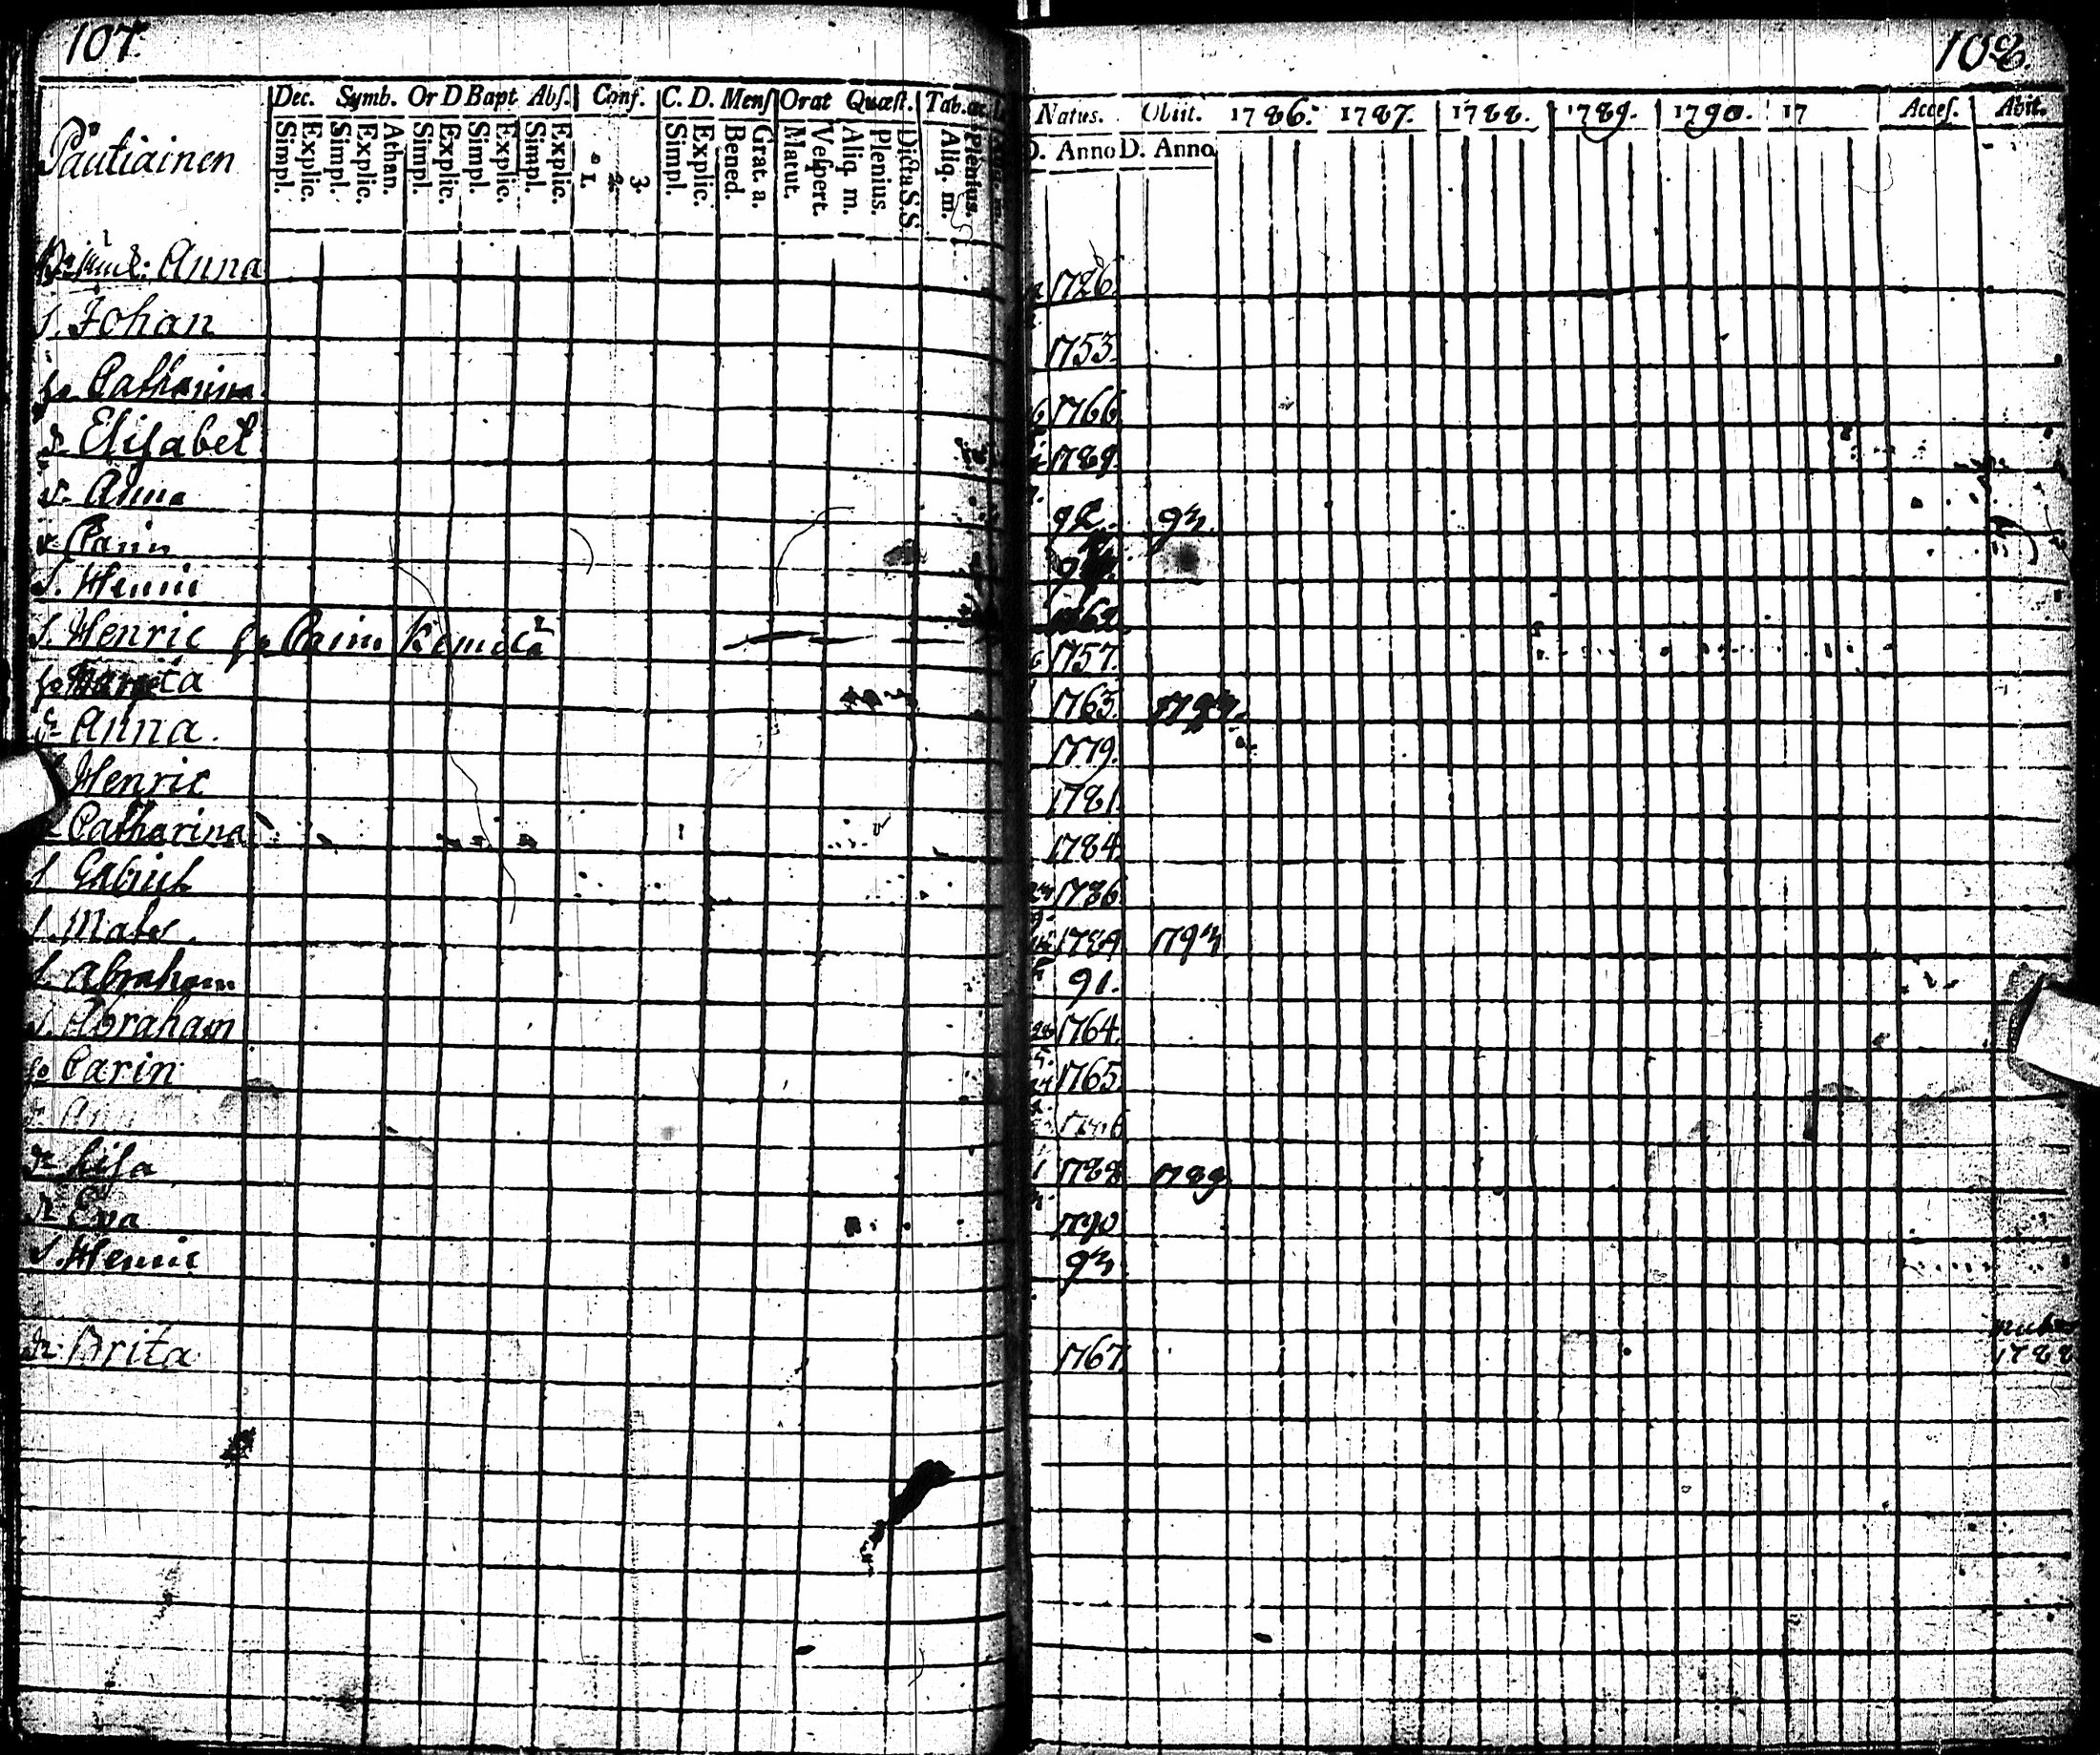 107. 108.
Dec. Symb. Or D Bapt Abſ. Conf. C. D. Menſ Orat Quæſt. Tab. Natus. Obiit. 1786. 1787. 1788. 1789. 1790. 17 Acceſ. Abit.
Simpl. Explic. Simpl. Explic. Athan. Simpl. Explic. Simpl. Explic. Simpl. Explic. 1. 2. 3. Simpl. Explic. Bened. Grat. a. Matut. Veſpert. Aliq. m. Plenius. Dicta S.S. Aliq. m. Plenius. D. Anno D. Anno
Pautiainen
Anna 1726.
S. Johan 1753.
Catharina 1766
Elisabet 1789
Anna 92. 93.
Carin
S. Henric
S. Henric Carin 1757.
1763. 1793.
Anna. 1779.
Henric 1781
Catharina 1784
S. Gabriel 1786
S. Mats. 1789 1793
S. Abraham 91.
S. Abraham 1764
Carin 1765
Lisa 1788 1789
Eva 1790
S. Henric 93.
Brita 1767 1788